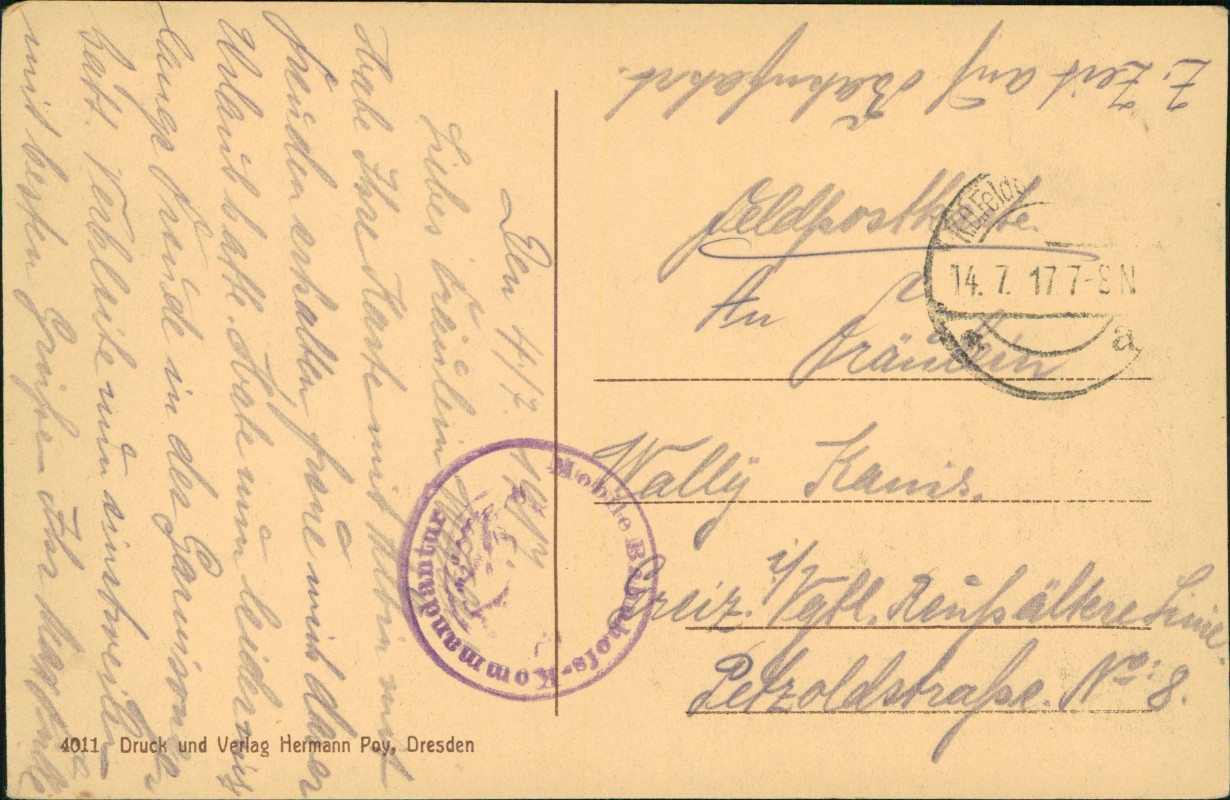 Z. Zeit auf Bahnfahrt.
Feldpostkarte.
An
Fräulein
Wally Kanis.
Greiz. i/Vgtl. Reuß ältere Linie
Petzoldstraße. No: 8.
K.D.Feldp
14. 7. 17 7-8 N
a
Mobile Bahnhofs-Kommandantur
Den 4/7. 1917
Liebes Fräulein
Habe Ihre Karte mit
Freuden erhalten freue mich daher
Urlaub hatte. Habe nun leider
lange Freunde in der Garnison
habt. Verbleibe nun einstweilen
mit besten Grüßen Ihr
4011 Druck und Verlag Hermann Poy, Dresden